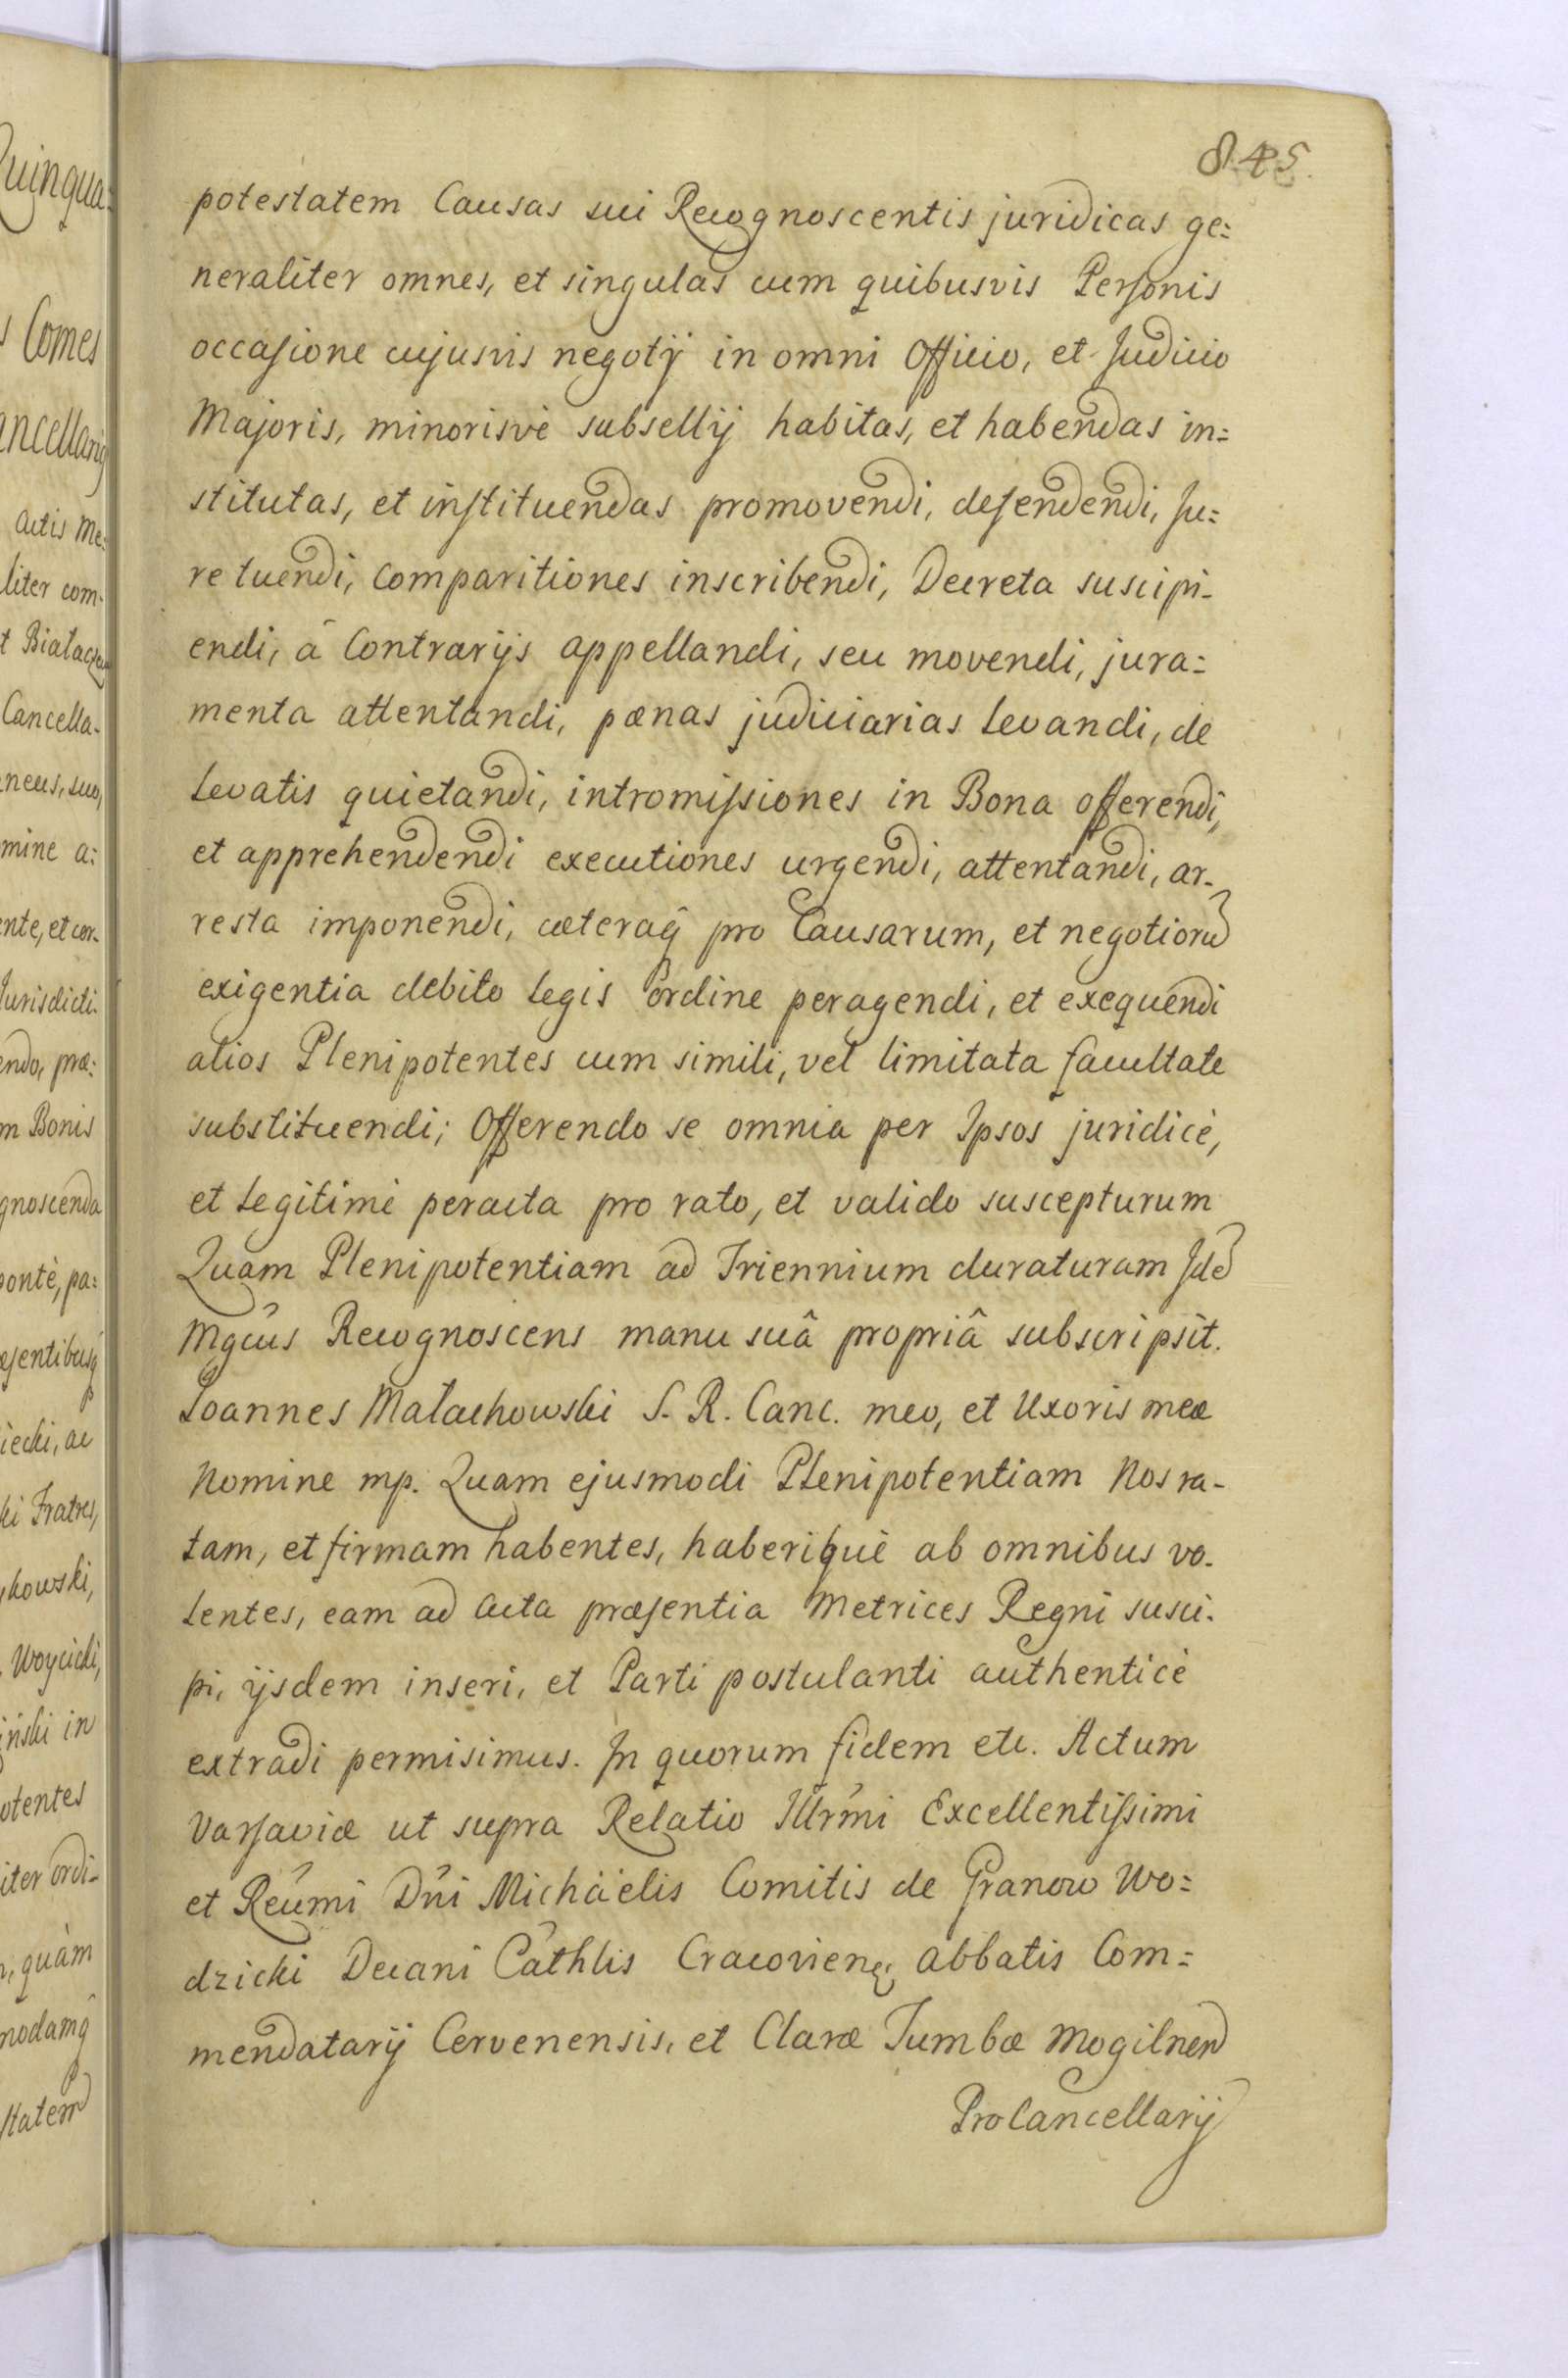 845.
potestatem Causas sui Recognoscentis juridicas ge:
neraliter omnes, et singulas cum quibusvis Personis
occasione cujusvis negotij in omni Officio, et Judicio
Majoris, minorisvè subsellij habitas, et habendas in:
stitutas, et instituendas promovendi, defendendi, Ju:
re tuendi, Comparitiones inscribendi, Decreta suscipi-
endi, â Contrarijs appellandi, seu movendi, jura:
menta attentandi, pœnas judiciarias levandi, de
levatis quietandi, intromissiones in Bona offerendi,
et apprehendendi executiones urgendi, attentandi, ar-
resta imponendi, cæteraq̃ pro Causarum, et negotiorũ
exigentia debito legis ordine peragendi, et exequendi
alios Plenipotentes cum simili, vel limitata facultate
substituendi; Offerendo se omnia per Ipsos juridicè,
et legitimè peracta pro rato, et valido suscepturum
Quam Plenipotentiam ad Triennium duraturam Idẽ
Mgcûs Recognoscens manu suâ propriâ subscripsit.
Joannes Małachowski S. R. Canc. meo, et Uxoris meæ
Nomine mp. Quam ejusmodi Plenipotentiam Nos ra-
tam, et firmam habentes, haberiquè ab omnibus vo-
lentes, eam ad Acta præsentia Metrices Regni susci-
pi, ijsdem inseri, et Parti postulanti authenticè
extradi permisimus. In quorum fidem etc. Actum
Varsaviæ ut supra Relatio Illr̃mi Excellentissimi
et Reũmi Dñi Michäelis Comitis de Granow Wo:
dzicki Decani Cathlis Cracovien̄, Abbatis Com:
mendatarij Cervenensis, et Claræ Tumbæ Mogilnen̄
ProCancellarij